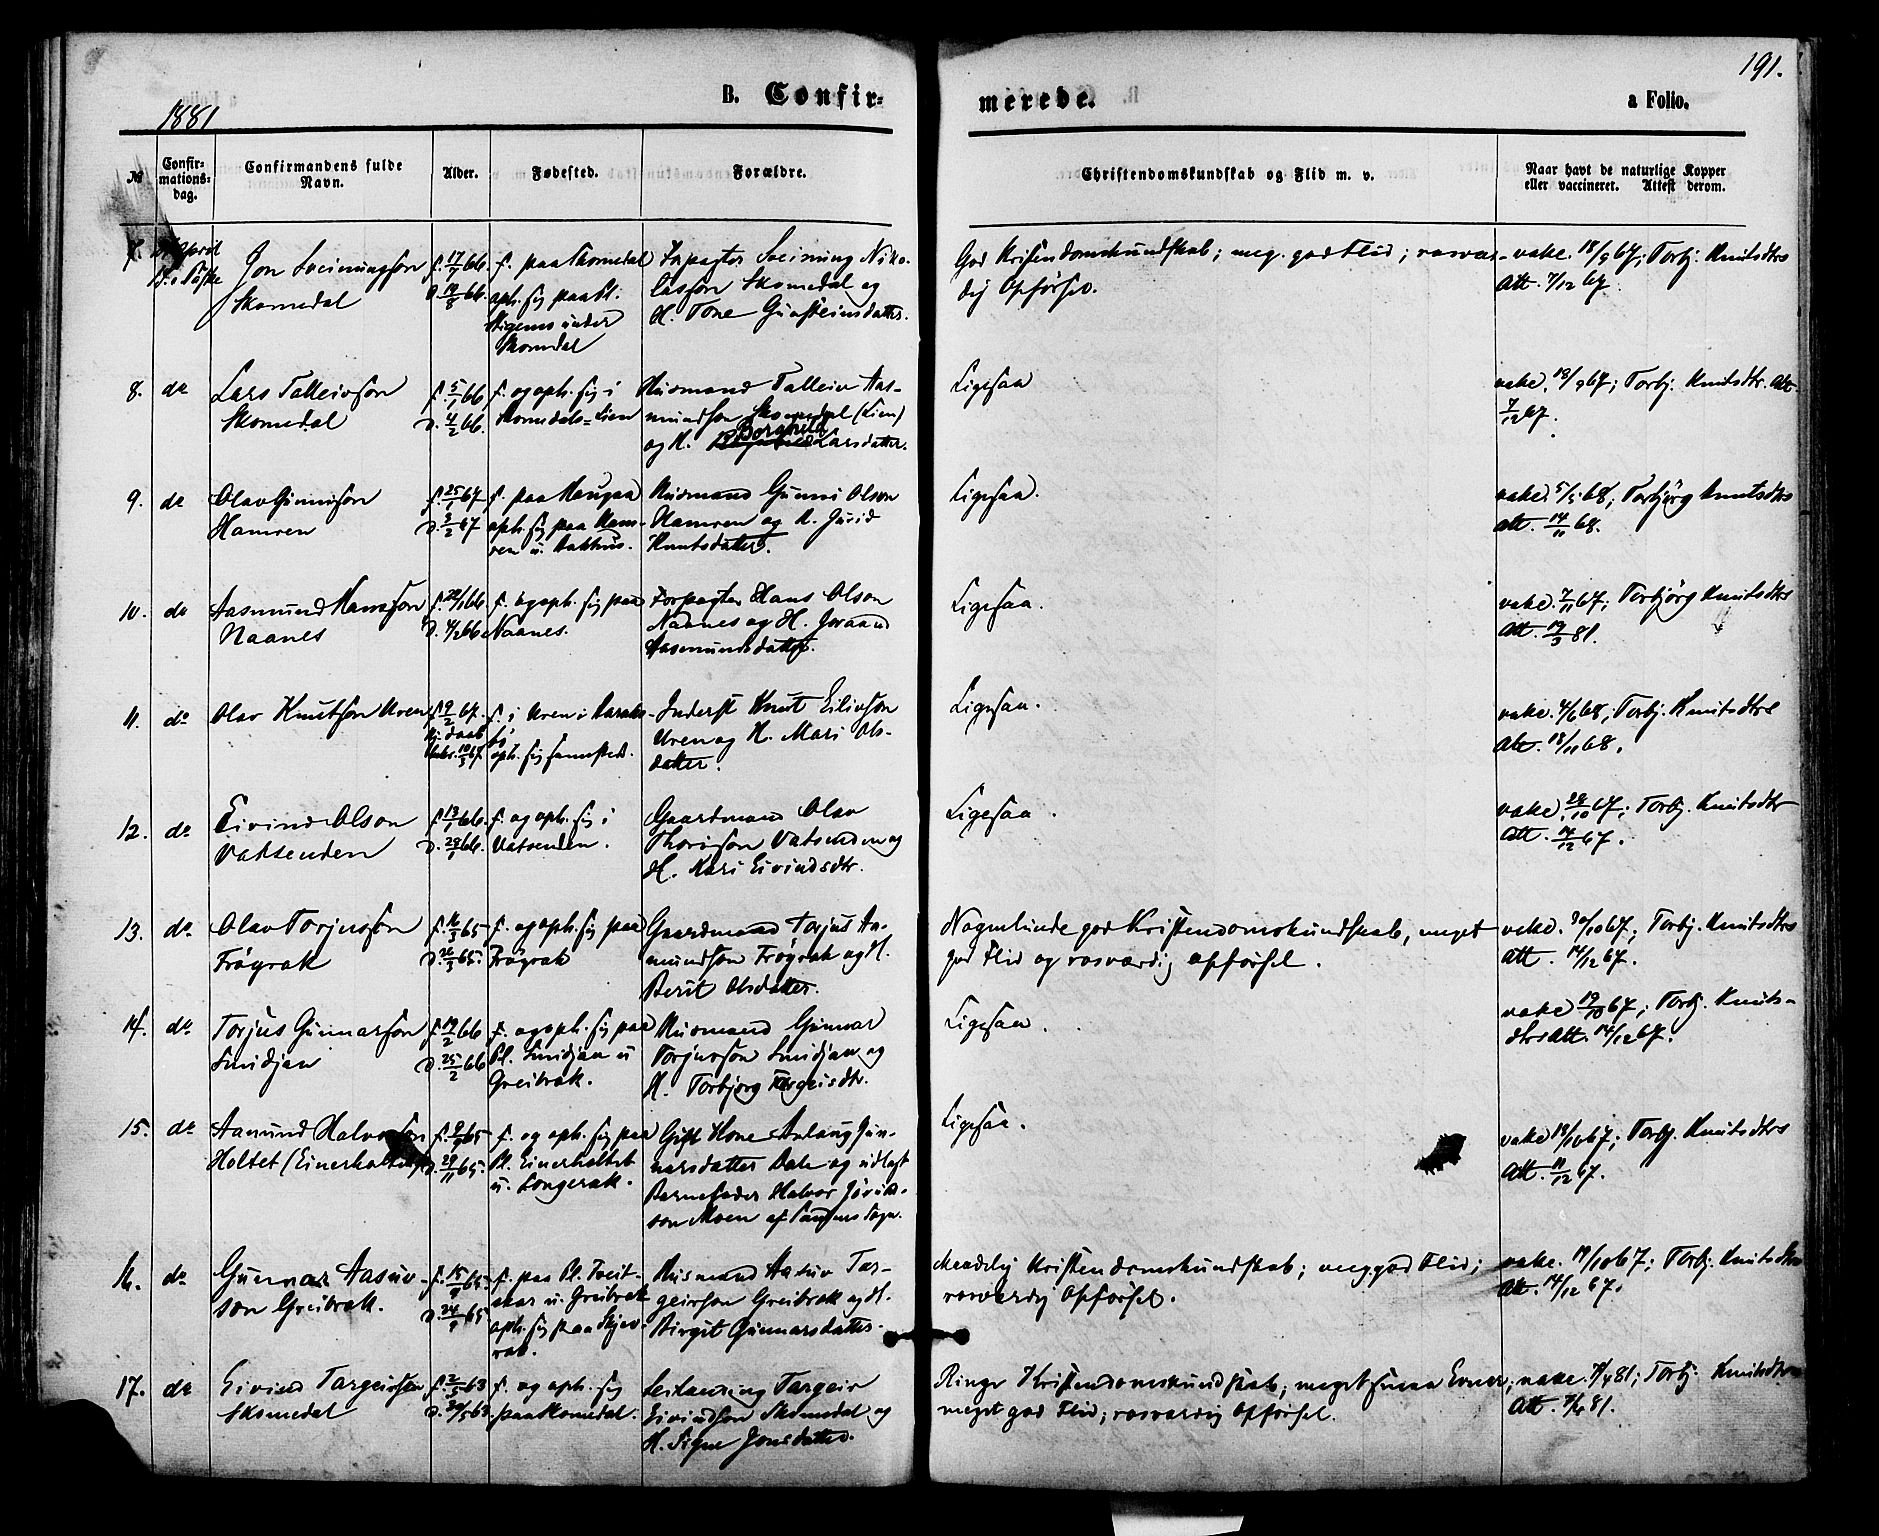 191.
1881
B. Confir-
merede.
a Folio.
№
Confir-
mations-
dag.
Confirmandens fulde
Navn.
Alder.
Fødested.
Forældre.
Christendomskundskab og Flid m. v.
Naar havt de naturlige Kopper
eller vaccineret. Attest derom.
7. April
Påske
Jon Sveinungson
Skomedal
f. 17/7 66
D. 19/8 66.
f. paa Skomedal
oph. sig paa Pl.
Stigemo under
Skomdal
Forpagter Sveinung Niko-
lasson Skomedal og
H. Tone Gunsteinsdatter.
God Kristendomskundskab; meg. god Flid; rosvær-
dig Opførsel.
vake. 18/9 67; Torbj. Knutsdtrs
Att. 7/12 67.
8. do
Lars Talleivson
Skomedal
f. 5/1 66
D. 4/2 66.
f. og oph. sig i
Skomedals-Lien
Husmand Talleiv Aas-
mundson Skomedal (Lien)
og K. Borghild Larsdatter.
Ligesaa
vake. 18/9 67; Torbj. Knutsdtr. Att.
7/12 67.
9. do
Olav Gunnuson
Hamren
f. 25/1 67
D. 3/2 67
f. paa Haugaa
oph. sig paa Ham-
ren u. Aakhus.
Husmand Gunnu Olson
Hamren og K. Juvid
Knutsdatter.
Ligesaa.
vake. 5/5 68; Torbjörg Knutsdtrs
att. 14/11 68.
10. do
Aasmund Hansson
Naanes
f. 22/1 66
D. 4/2 66
f. og oph. sig paa
Naanes.
Forpagter Hans Olson
Naanes og H. Joraand
Aasmundsdatter.
Ligesaa.
vake. 7/11 67; Torbjörg Knutsdtrs
Att. 19/3 81.
11. do
Olav Knutson Uren
f. 9/2 67.
Hj. daab
f. i Uren i
oph. sig sammesteds.
Inderst Knut Eilivson
Uren og H. Mari Ols-
datter.
Ligesaa.
vake. 4/6 68; Torbj. Knutsdtrs
Att. 18/11 68.
12. do
Eivind Olson
Vatsenden
f. 13/1 66.
D. 28/1 66.
f. og oph. sig i
Vatsenden.
Gaardmand Olav
Thorisson Vatsenden og
H. Kari Eivindsdtr.
Ligesaa.
vake. 28/10 67; Torbj. Knutsdtr
att. 14/12 67.
13. do.
Olav Torjusson
Frøyrak
f. 16/3 65
D. 26/3 65.
f. og oph. sig paa
Frøyrak
Gaardmand Torjus Aa-
mundson Frøyrak og H.
Berit Olsdatter.
Nogenlunde god Kristendomskundskab, meget
god Flid og rosværdig opførsel.
vake. 30/10 67; Torbj. Knutsdtrs
Att. 14/12 67.
14. do.
Torjus Gunnarson
Smidjan
f. 19/2 66
D. 25/2 66
f. og oph. sig paa
Pl. Smidjan u
Greibrok.
Husmand Gunnar
Torjusson Smidjan og
K. Torbjørg Targeisdtr.
Ligesaa.
vake 19/10 67; Torbj. Knuts-
dtrs Att. 14/12 67.
15. do
Aanund Halvorson
Holtet (Einerholtet)
f. 9/9 65
D. 29/11 65.
f. og oph. sig paa
Pl. Einerholtet
u. Longerak.
Gift Kone Anlaug Gun-
narsdatter Dale og udlagt
Barnefader Halvor
son Moen af Sandnes Sogn.
Ligesaa.
vake 19/10 67; Torbj. Knutsdtrs
Att. 11/12 67.
16. do.
Gunnar Aasuv-
son Greibrok.
f. 15/9 65.
D. 24/9 65
f. paa Pl. Tveit-
skar u. Greibrok
oph. sig paa Skjev-
rak.
Husmand Aasuv Tar-
geirson Greibrok og H.
Birgit Gunnarsdatter.
Maadelig Kristendomskundskab; meg. god Flid;
rosværdig Opførsel.
vake. 19/10 67; Torbj. Knutsdtrs
Att. 14/12 67.
17. do
Eivind Targeirson
Skomedal
f. 2/5 63
D. 30/5 63.
f. og oph. sig
paa Skomedal.
Leilænding Targeir
Eivindson Skomedal og
H. Signe Jonsdatter.
Ringe Kristendomskundskab; meget smaa Evner;
meget god Flid; rosværdig Opførsel.
vake. 7/4 81; Torbj. Knutsdtrs
Att. 7/4 81.